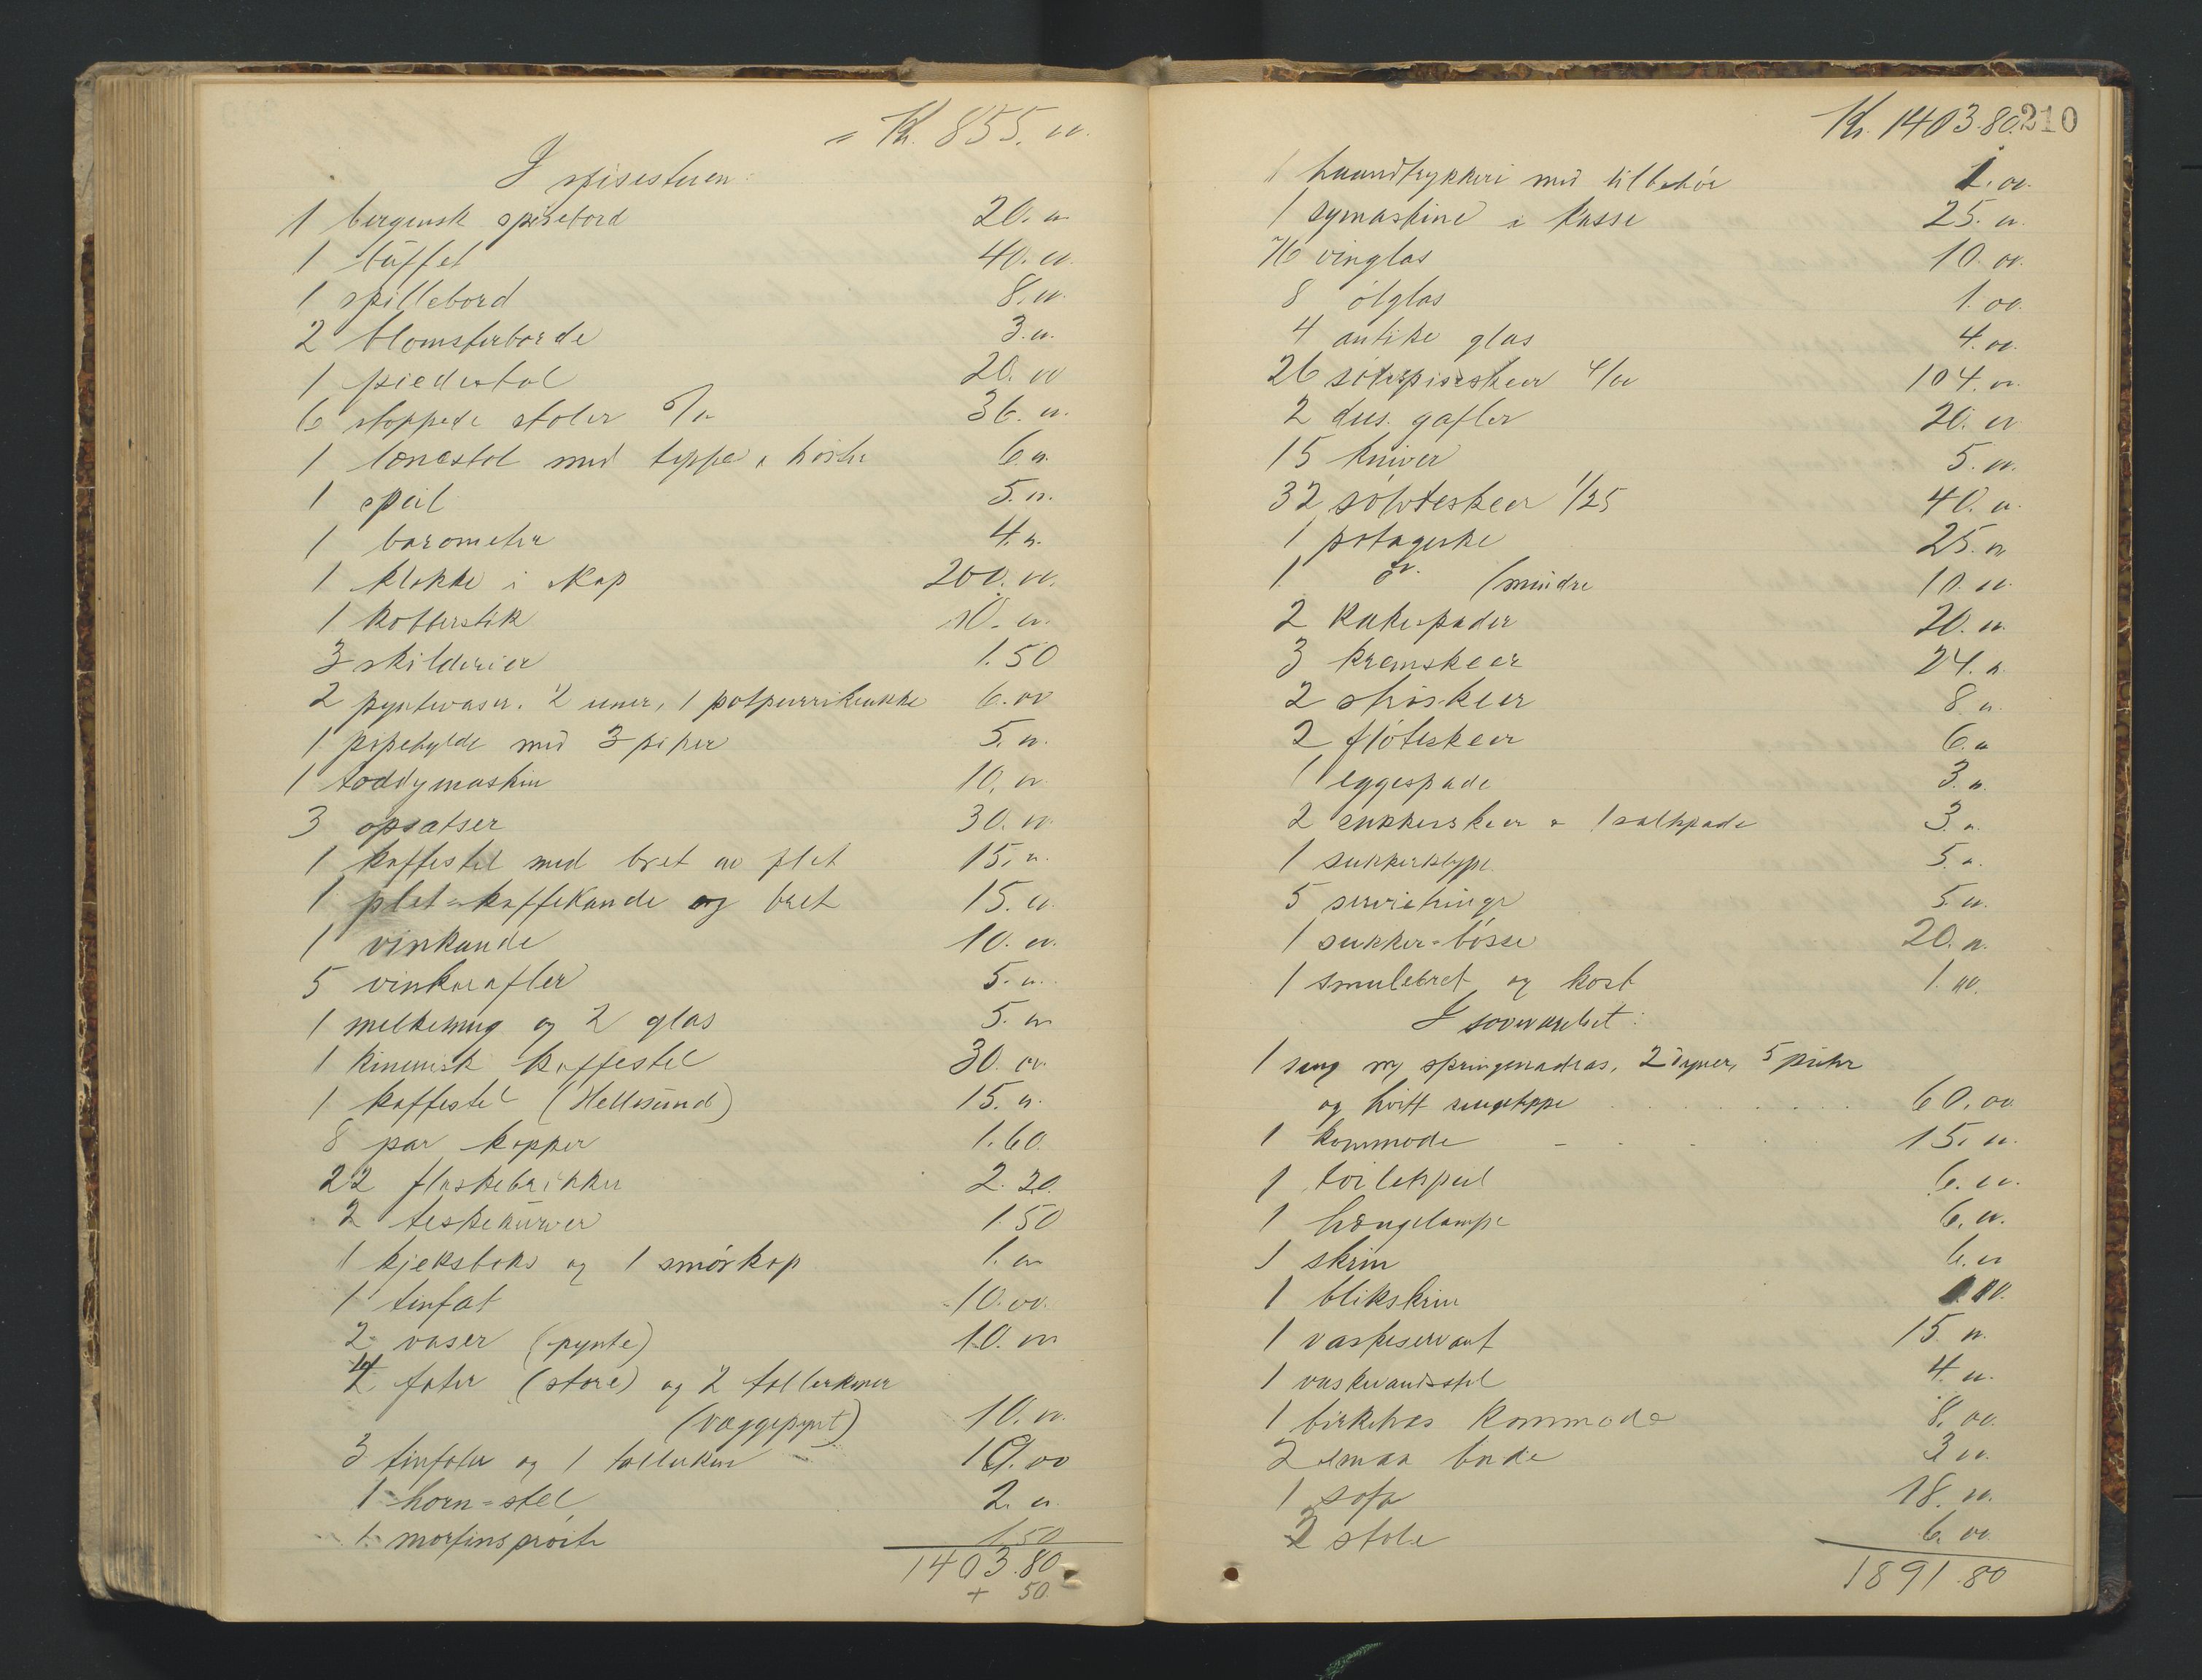 = Kr. 855. 00.
I spisestuen:
1 bergensk spisebord 20. 00
1 büffet 40. 00.
1 spillebord 8. 00.
2 blomsterborde 3. 00.
1 piedestal 20. 00
6 stoppede stoler 6/00 36. 00.
1 lænestol med teppe 6. 00.
1 speil 5. 00.
1 barometer 4. 00.
1 klokke i skap 200. 00.
1 kobberstik 10. 00.
3 skilderier 1. 50
2 pyntevaser, 2 urner, 1 potpurrikrukke 6. 00
1 pipehylde med 3 piper 5. 00.
1 toddymaskin 10. 00.
3 opsatser 30. 00
1 kaffestel med bret av plet 15. 00.
1 plet-kaffekande og bret 15. 00
1 vinkande 10. 00.
5 vinkarafler 5. 00.
1 melkemug og 2 glas 5. 00
1 kinesisk kaffestel 30. 00.
1 kaffestel (Hellesund) 15. 00.
8 par kopper 1. 60.
22 flaskebrikker 2. 20.
2 teskekurver 1. 50
1 kjeksboks og 1 smörkop 1. 00
1 tinfat 10. 00.
2 vaser (pynte) 10. 00
4 fater (store) og 2 tallerkener
(væggepynt) 10. 00.
3 tinfater og 1 tallerken 10. 00
1 horn-stel 2. 00
1 morfinspröite 1. 50
1403. 80
+ 50.
Kr. 1403. 80. 210
1 haandtrykkeri med tilbehör 1. 00.
1 symaskine i kasse 25. 00.
76 vinglas 10. 00.
8 ölglas 1. 00.
4 antike glas 4. 00.
26 sölvspiseskeer 4/00 104. 00.
2 dus. gafler 20. 00
15 kniver 5. 00.
32 sölvteskeer 1/25 40. 00.
1 potageske 25. 00
1 do. (mindre 10. 00
2 kakespader 20. 00.
3 kremskeer 24. 00.
2 ströskeer 8. 00.
2 flöteskeer 6. 00
1 eggespade 3. 00.
2 sukkerskeer & 1 saltspade 3. 00.
1 sukkerklype 5. 00.
5 servietringe 5. 00.
1 sukker-bösse 20. 00.
1 smulebret og kost 1. 00.
I soveværelset:
1 seng m/ springmadras, 2 dyner, 5 puter
og hvitt sengeteppe 60. 00
1 kommode 15. 00.
1 toiletspeil 6. 00.
1 hængelampe 6. 00.
1 skrin 6. 00
1 blikskrin
1 vaskeservant 15. 00.
1 vaskevandsstel 4. 00.
1 birketræs kommode 8. 00.
2 smaa borde 3. 00.
1 sofa 18. 00.
3 stole 6. 00
1891. 80